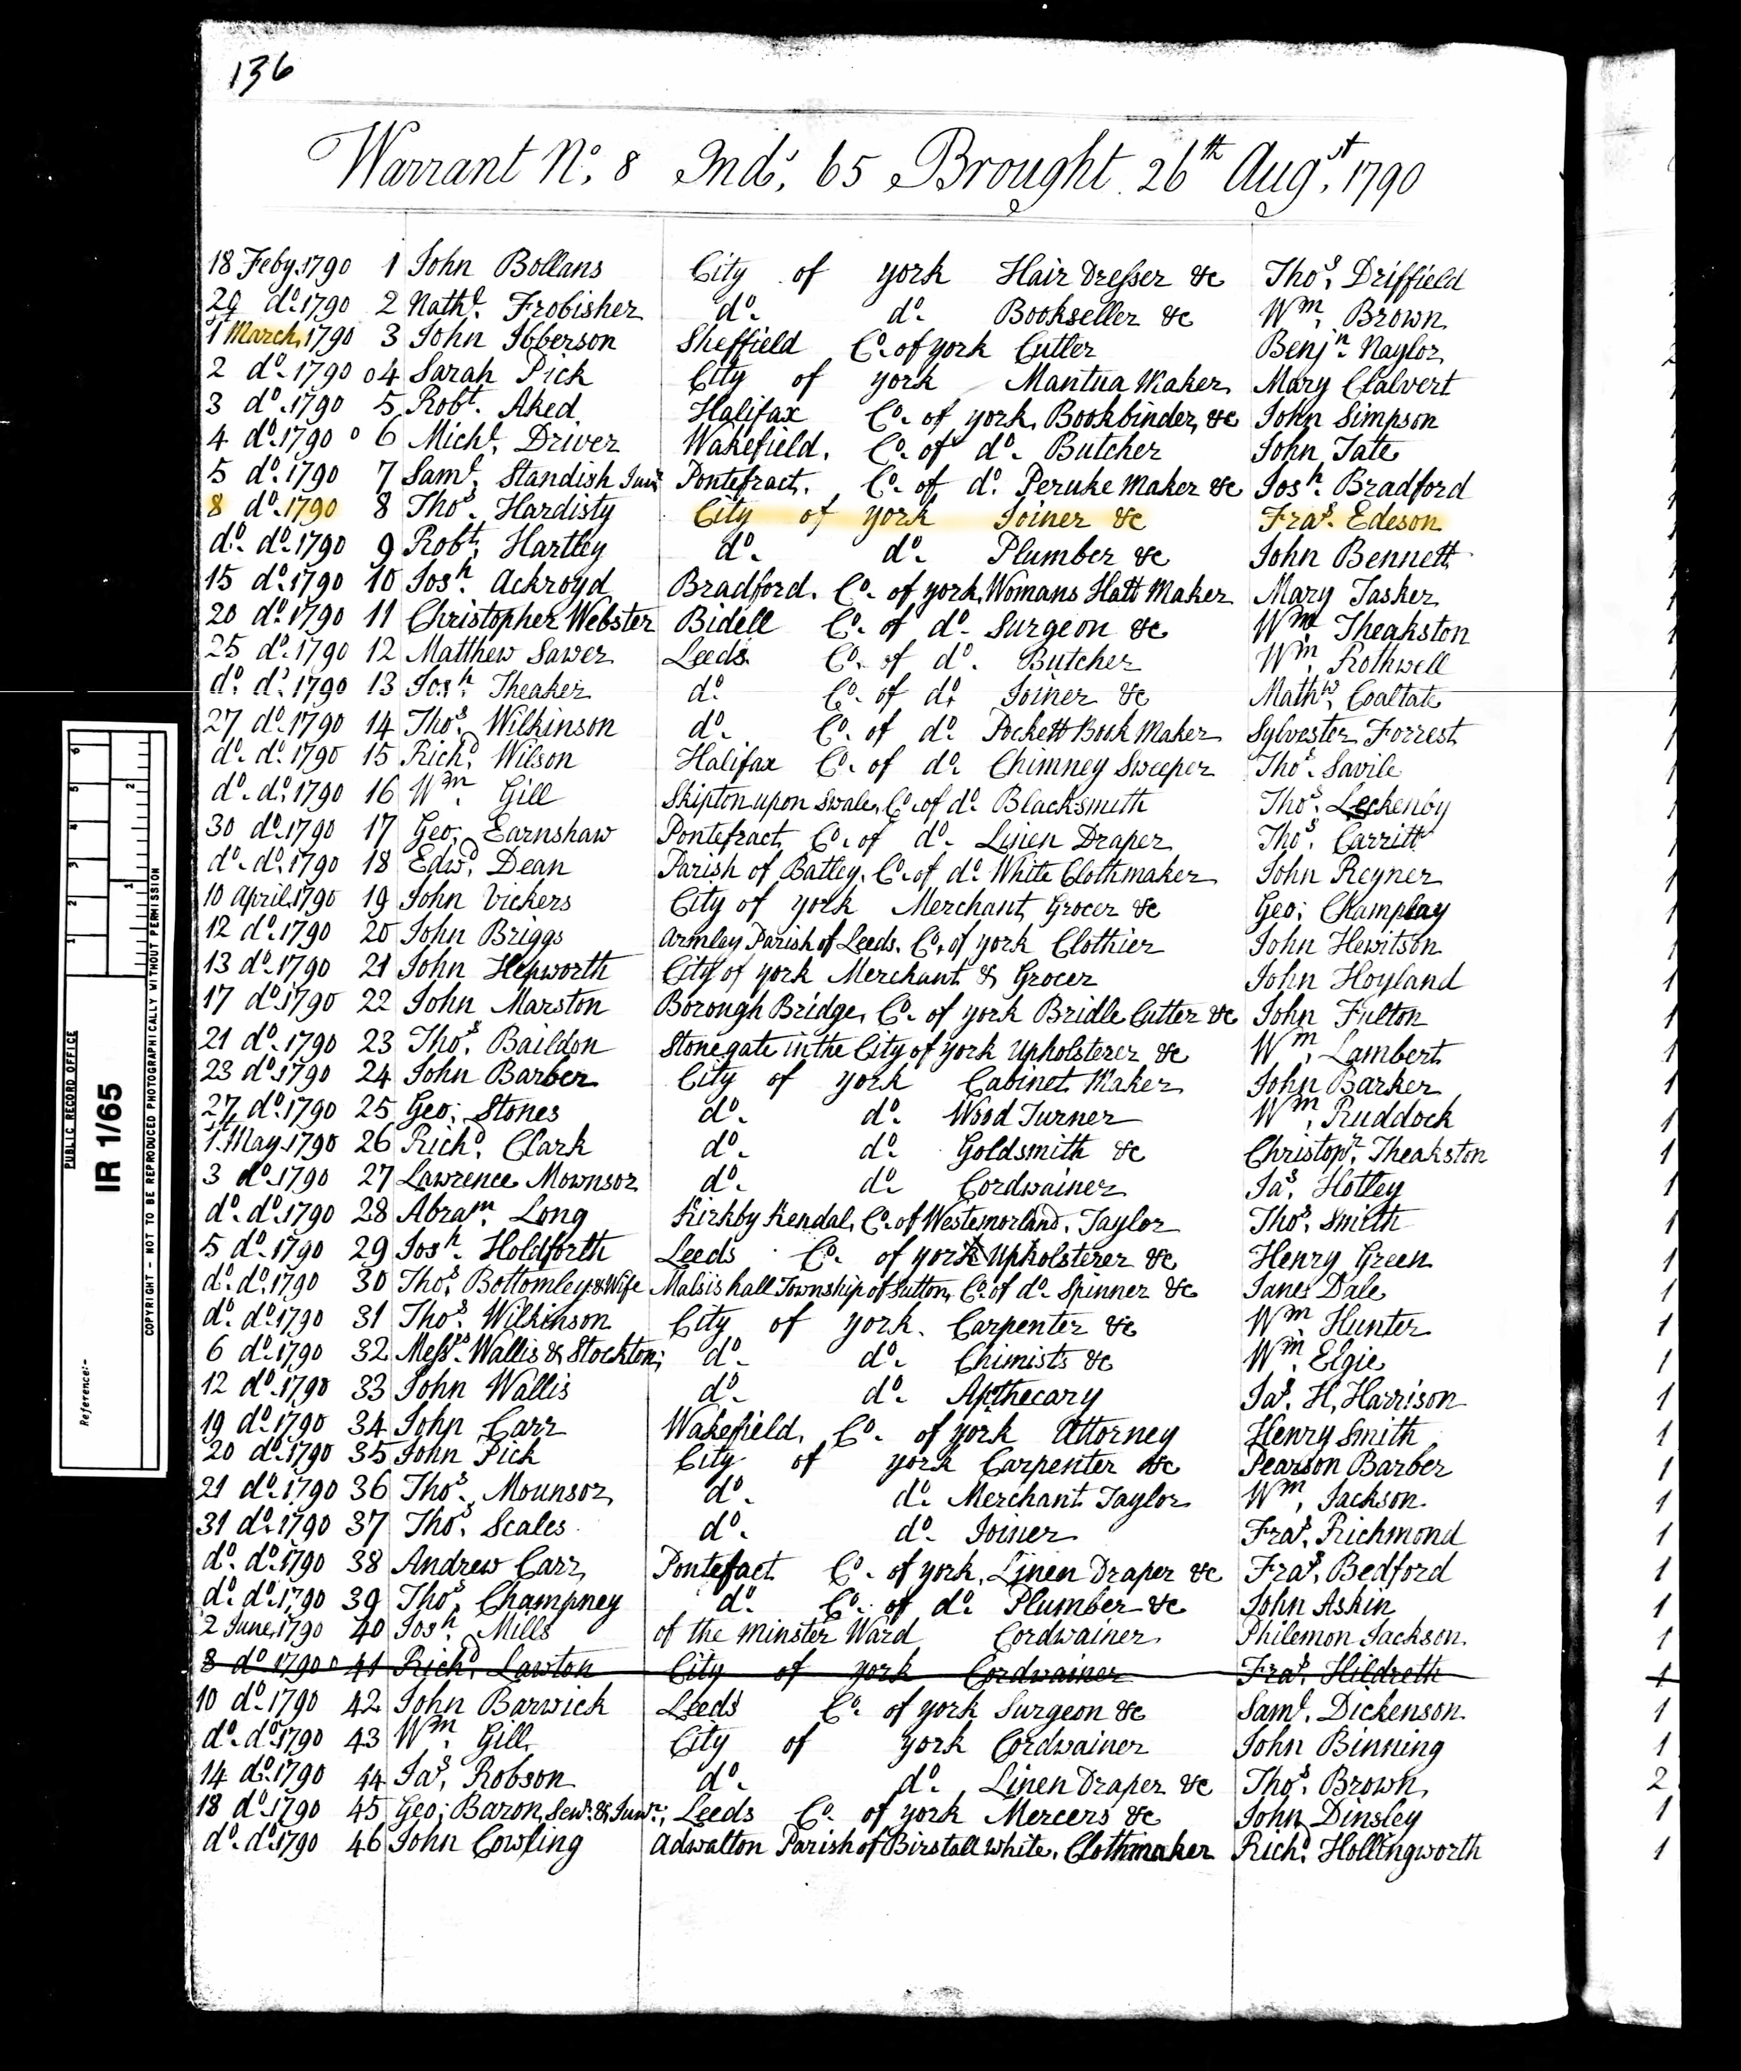 136
Warrant No. 8 Inds. 65 Brought 26th Augst. 1790
18 Feby. 1790 1 John Bollans City of York Hair Dresser &c Thos. Driffield
29 do. 1790 2 Nathl. Frobisher do. do. Bookseller &c Wm. Brown
1st March 1790 3 John Ibberson Sheffield Co. of York Cutler Benjn. Naylor
2 do. 1790 o 4 Sarah Pick City of York Mantua Maker Mary Clalvert
3 do. 1790 5 Robt. Aked Halifax Co. of York, Bookbinder, &c John Simpson
4 do. 1790 o 6 Michl. Driver Wakefield, Co. of do. Butcher John Tate
5 do. 1790 7 Saml. Standish Junr Pontefract. Co. of do. Peruke Maker &c Josh. Bradford
8 do. 1790 8 Thos. Hardisty City of York Joiner &c Fras. Edeson
do. do. 1790 9 Robt. Hartley do. do. Plumber &c John Bennett
15 do. 1790 10 Josh. Ackroyd Bradford. Co. of York, Womans Hatt Maker Mary Tasker
20 do. 1790 11 Christopher Webster Bidell Co. of do. Surgeon &c Wm. Theakston
25 do. 1790 12 Matthew Sawer Leeds Co. of do. Butcher Wm. Rothwell
do. do. 1790 13 Josh. Theaker do. Co. of do. Joiner &c Mathw. Coaltate
27 do. 1790 14 Thos. Wilkinson do. Co. of do. Pockett Book Maker Sylvester Forrest
do. do. 1790 15 Richd. Wilson Halifax Co. of do. Chimney Sweeper Thos. Savile
do. do. 1790 16 Wm. Gill Skipton upon Swale, Co. of do. Blacksmith Thos. Leckenby
30 do. 1790 17 Geo: Earnshaw Pontefract Co. of do. Linen Draper Thos. Carritt
do. do. 1790 18 Edwd. Dean Parish of Batley, Co. of do. White Clothmaker John Reyner
10 April 1790 19 John Vickers City of York Merchant Grocer &c Geo: Champlay
12 do. 1790 20 John Briggs Armley Parish of Leeds. Co. of York Clothier John Hewitson
13 do. 1790 21 John Hepworth City of York Merchant & Grocer John Hoyland
17 do. 1790 22 John Marston Borough Bridge, Co. of York Bridle Cutter &c John Fulton
21 do. 1790 23 Thos. Baildon Stonegate in the City of York Upholsterer &c Wm. Lambert
23 do. 1790 24 John Barber City of York Cabinet Maker John Barker
27 do. 1790 25 Geo: Stones do. do. Wood Turner Wm. Ruddock
1st. May 1790 26 Richd. Clark do. do. Goldsmith &c Christopr. Theakston
3 do. 1790 27 Lawrence Mownsor do. do. Cordwainer Jas. Hotley
do. do. 1790 28 Abram. Long Kirkby Kendal, Co. of Westemorland, Taylor Thos. Smith
5 do. 1790 29 Josh. Holdforth Leeds Co. of York Upholsterer &c Henry Green
do. do. 1790 30 Thos. Bottomley & Wife Malsis hall Township of Sutton, Co. of do. Spinner &c Jane Dale
do. do. 1790 31 Thos. Wilkinson City of York. Carpenter &c Wm. Hunter
6 do. 1790 32 Messrs. Wallis & Stockton; do. do. Chimists &c Wm. Elgie
12 do. 1790 33 John Wallis do. do. Apthecary Jas. H. Harrison
19 do. 1790 34 John Carr Wakefield, Co. of York Attorney Henry Smith
20 do. 1790 35 John Pick City of York Carpenter &c Pearson Barber
21 do. 1790 36 Thos. Mounsor do. do. Merchant Taylor Wm. Jackson
31 do. 1790 37 Thos. Scales do. do. Joiner Fras. Richmond
do. do. 1790 38 Andrew Carr Pontefact Co. of York, Linen Draper &c Fras. Bedford
do. do. 1790 39 Thos. Champney do. Co. of do. Plumber &c John Askin
2 June 1790 40 Josh. Mills of the Minster Ward Cordwainer Philemon Jackson
8 do. 1790 o 41 Richd. Lawton City of York Cordwainer Fras. Hildreth
10 do. 1790 42 John Barwick Leeds Co. of York Surgeon &c Saml. Dickenson
do. do. 1790 43 Wm. Gill City of York Cordwainer John Binning
14 do. 1790 44 Jas. Robson do. do. Linen Draper &c Thos. Brown 2
18 do. 1790 45 Geo: Baron Senr. & Junr.; Leeds Co. of York Mercers &c John Dinsley 1
do. do. 1790 46 John Cowling Adwalton Parish of Birstall White, Clothmaker Richd. Hollingworth 1
PUBLIC RECORD OFFICE
IR 1/65
Reference:-
COPYRIGHT - NOT TO BE REPRODUCED PHOTOGRAPHICALLY WITHOUT PERMISSION